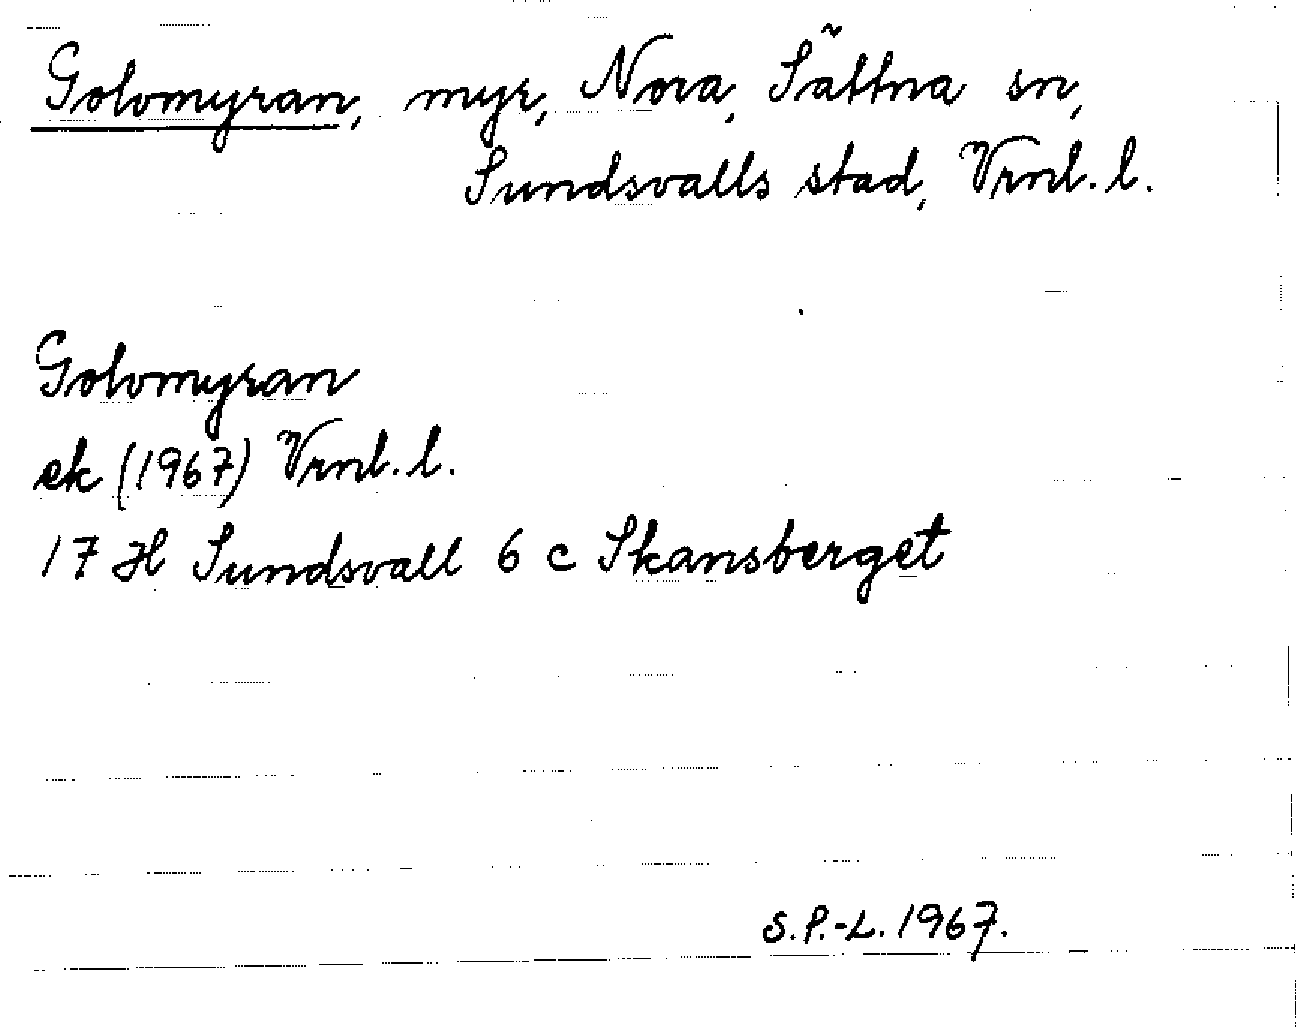 Golvmyran, myr, Nora, Sättna sn,
Sundsvalls stad, Vrnl. l.
Golvmyran
ek (1967) Vrnl. l.
17 H Sundsvall 6 c Skansberget
S.P.-L. 1967.